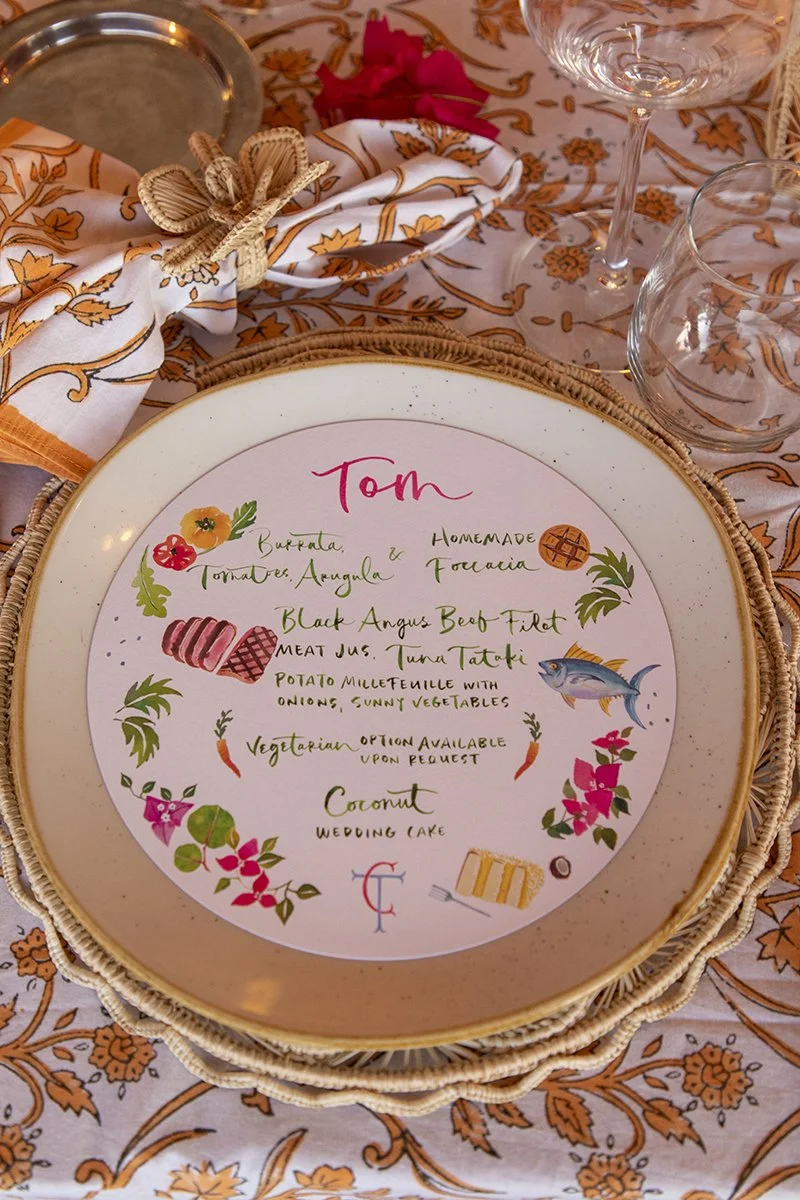 Tom
Burrata,
Tomatoes, Arugula & HOMEMADE
Foccacia
Black Angus Beef Filet
MEAT JUS, Tuna Tataki
POTATO MILLEFEUILLE WITH
ONIONS, SUNNY VEGETABLES
Vegetarian OPTION AVAILABLE
UPON REQUEST
Coconut
WEDDING CAKE
CT